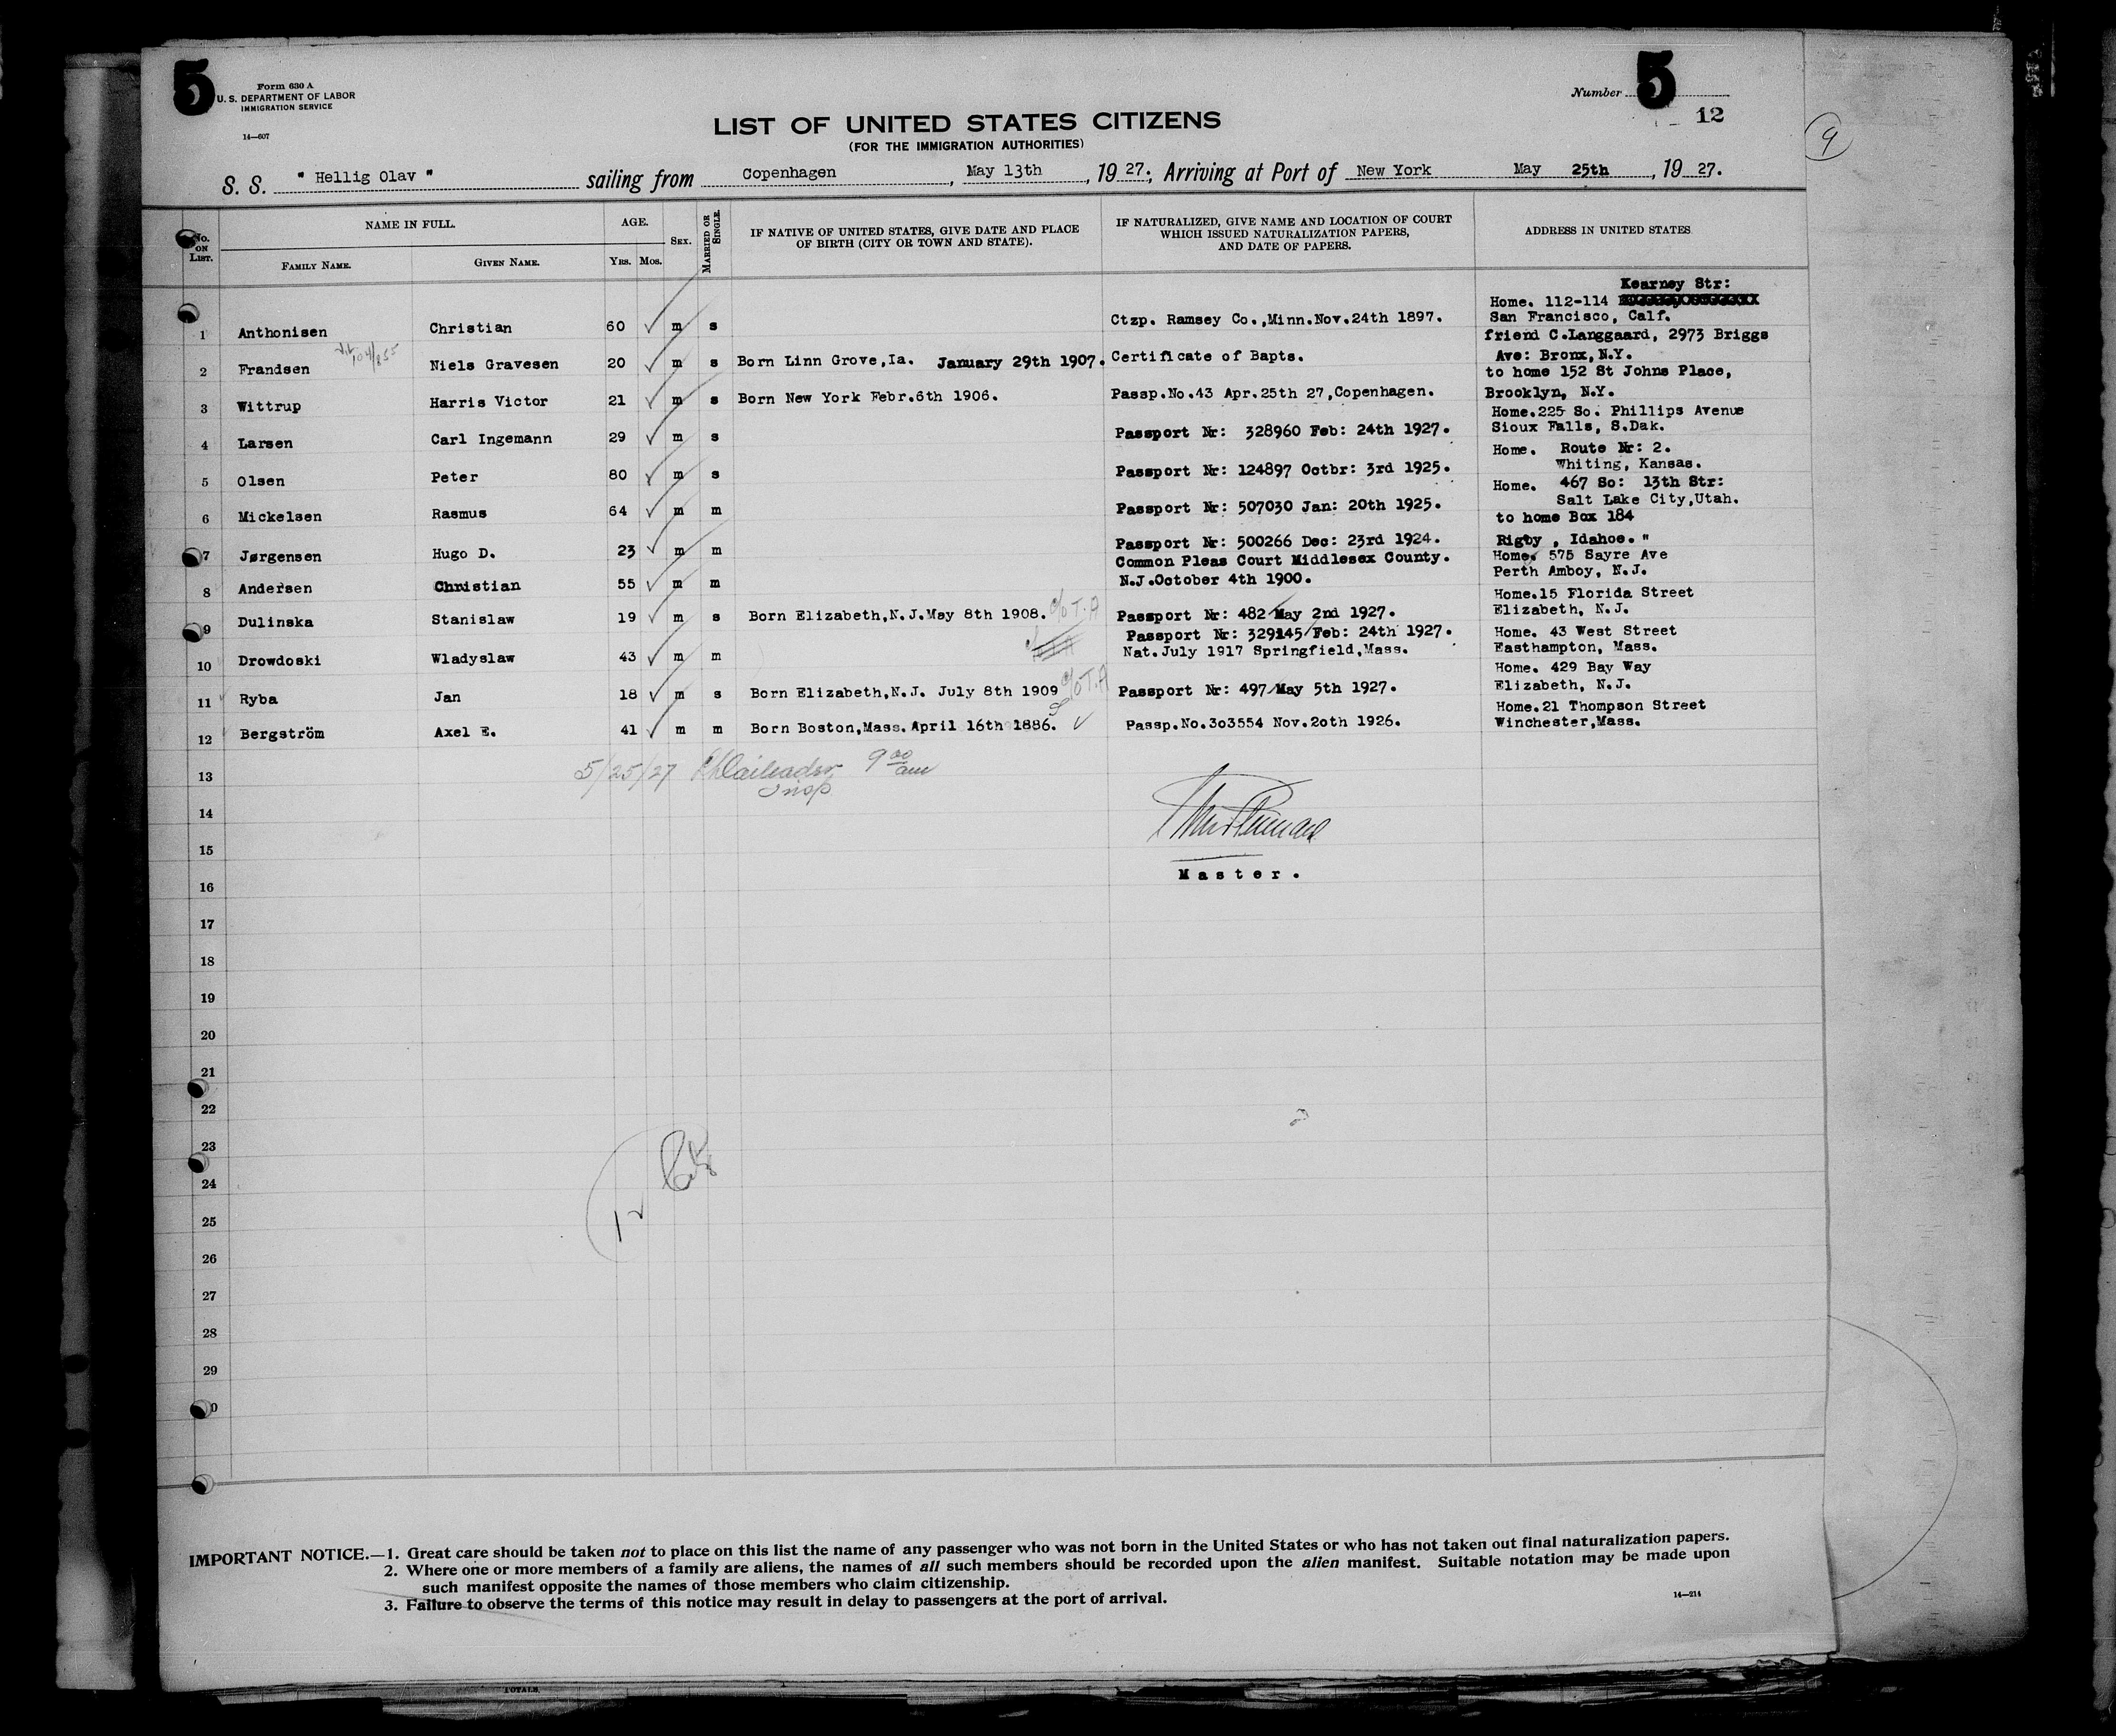 5
Form 630 A
U. S. DEPARTMENT OF LABOR
IMMIGRATION SERVICE
14—607
Number 5
12
9
LIST OF UNITED STATES CITIZENS
(FOR THE IMMIGRATION AUTHORITIES)
S. S. " Hellig Olav " sailing from Copenhagen, May 13th, 19 27.; Arriving at Port of New York May 25th, 19 27.
No. ON LIST. NAME IN FULL. AGE. SEX. MARRIED OR SINGLE. IF NATIVE OF UNITED STATES, GIVE DATE AND PLACE OF BIRTH (CITY OR TOWN AND STATE). IF NATURALIZED, GIVE NAME AND LOCATION OF COURT WHICH ISSUED NATURALIZATION PAPERS, AND DATE OF PAPERS. ADDRESS IN UNITED STATES
FAMILY NAME. GIVEN NAME. YRS. MOS.
1 Anthonisen Christian 60 m s Ctzp. Ramsey Co.,Minn.Nov.24th 1897. Home. 112-114 Kearney Str: San Francisco, Calf.
2 Frandsen Niels Gravesen 20 m s Born Linn Grove,Ia. January 29th 1907. Certificate of Bapts. friend C.Langgaard, 2973 Briggs Ave: Bronx, N.Y.
3 Wittrup Harris Victor 21 m s Born New York Febr.6th 1906. Passp.No.43 Apr.25th 27,Copenhagen. to home 152 St Johns Place, Brooklyn, N.Y.
4 Larsen Carl Ingemann 29 m s Passport Nr: 328960 Feb: 24th 1927. Home.225 So. Phillips Avenue Sioux Falls, S.Dak.
5 Olsen Peter 80 m s Passport Nr: 124897 Octbr: 3rd 1925. Home. Route Nr: 2. Whiting, Kansas.
6 Mickelsen Rasmus 64 m m Passport Nr: 507030 Jan: 20th 1925. Home. 467 So: 13th Str: Salt Lake City,Utah.
7 Jørgensen Hugo D. 23 m m Passport Nr: 500266 Dec: 23rd 1924. to home Box 184 Rigby , Idahoe. "
8 Andersen Christian 55 m m Common Pleas Court Middlesex County. N.J.October 4th 1900. Home. 575 Sayre Ave Perth Amboy, N.J.
9 Dulinska Stanislaw 19 m s Born Elizabeth,N.J.May 8th 1908. Passport Nr: 482 May 2nd 1927. Home.15 Florida Street Elizabeth, N.J.
10 Drowdoski Wladyslaw 43 m m Passport Nr: 329145 Feb: 24th 1927. Nat.July 1917 Springfield,Mass. Home. 43 West Street Easthampton, Mass.
11 Ryba Jan 18 m s Born Elizabeth,N.J. July 8th 1909 Passport Nr: 497 May 5th 1927. Home. 429 Bay Way Elizabeth, N.J.
12 Bergström Axel E. 41 m m Born Boston,Mass. April 16th 1886. Passp.No.303554 Nov.20th 1926. Home.21 Thompson Street Winchester,Mass.
5/25/27 9 00 am
Insp
13
14
15
Master.
16
17
18
19
20
21
22
23
24
25
26
27
28
29
0
IMPORTANT NOTICE.—1. Great care should be taken not to place on this list the name of any passenger who was not born in the United States or who has not taken out final naturalization papers.
2. Where one or more members of a family are aliens, the names of all such members should be recorded upon the alien manifest. Suitable notation may be made upon
such manifest opposite the names of those members who claim citizenship.
3. Failure to observe the terms of this notice may result in delay to passengers at the port of arrival.
14—214
TOTALS.